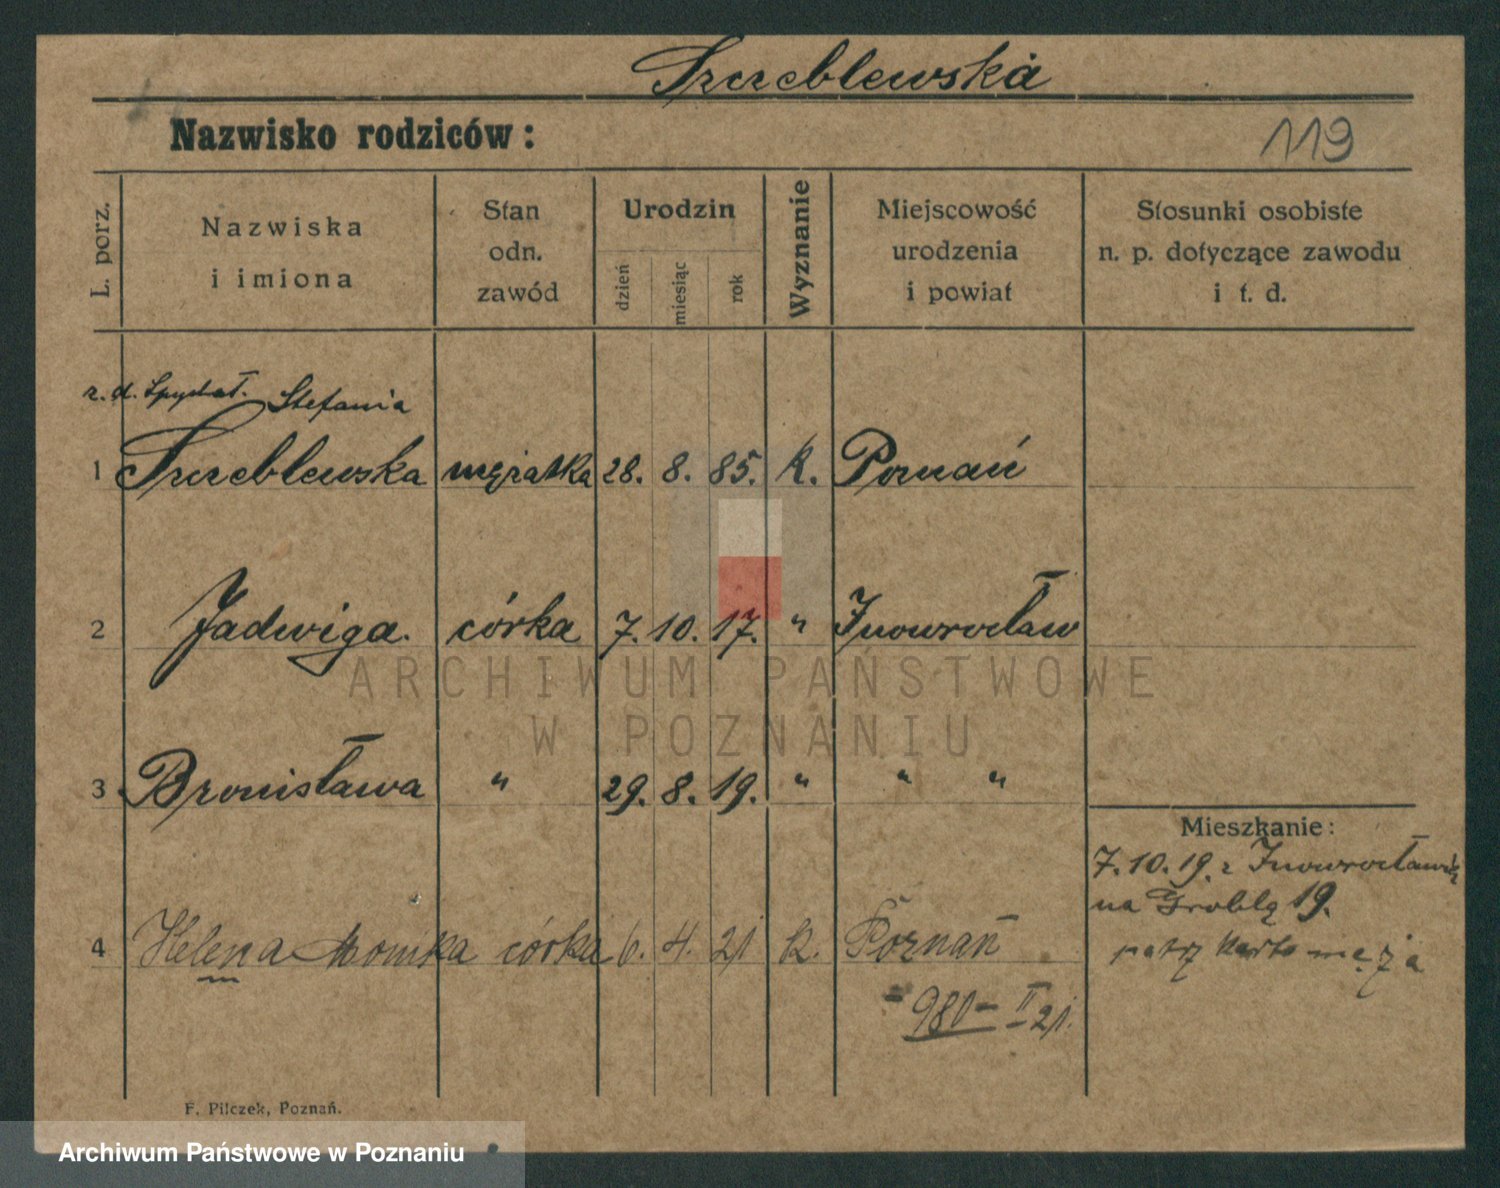 Szczeblewska
Nazwisko rodziców:
119
L. porz.
Nazwiska
i imiona
Stan
odn.
zawód
Urodzin
dzień
miesiąc
rok
Wyznanie
Miejscowość
urodzenia
i powiat
Stosunki osobiste
n. p. dotyczące zawodu
i t. d.
z. d. Spychał. Stefania
1 Szczeblewska mężatka 28. 8. 85. k. Poznań
2 Jadwiga. córka 7. 10. 17. " Inowrocław
3 Bronisława " 29. 8. 19. " " "
Mieszkanie:
7.10.19. z Inowrocławia
na Groblę 19.
4 Helena Monika córka 6. 4. 21 k. Poznań
patrz karta męża
980 - II 21.
F. Pilczek, Poznań.
ARCHIWUM PAŃSTWOWE
W POZNANIU
Archiwum Państwowe w Poznaniu